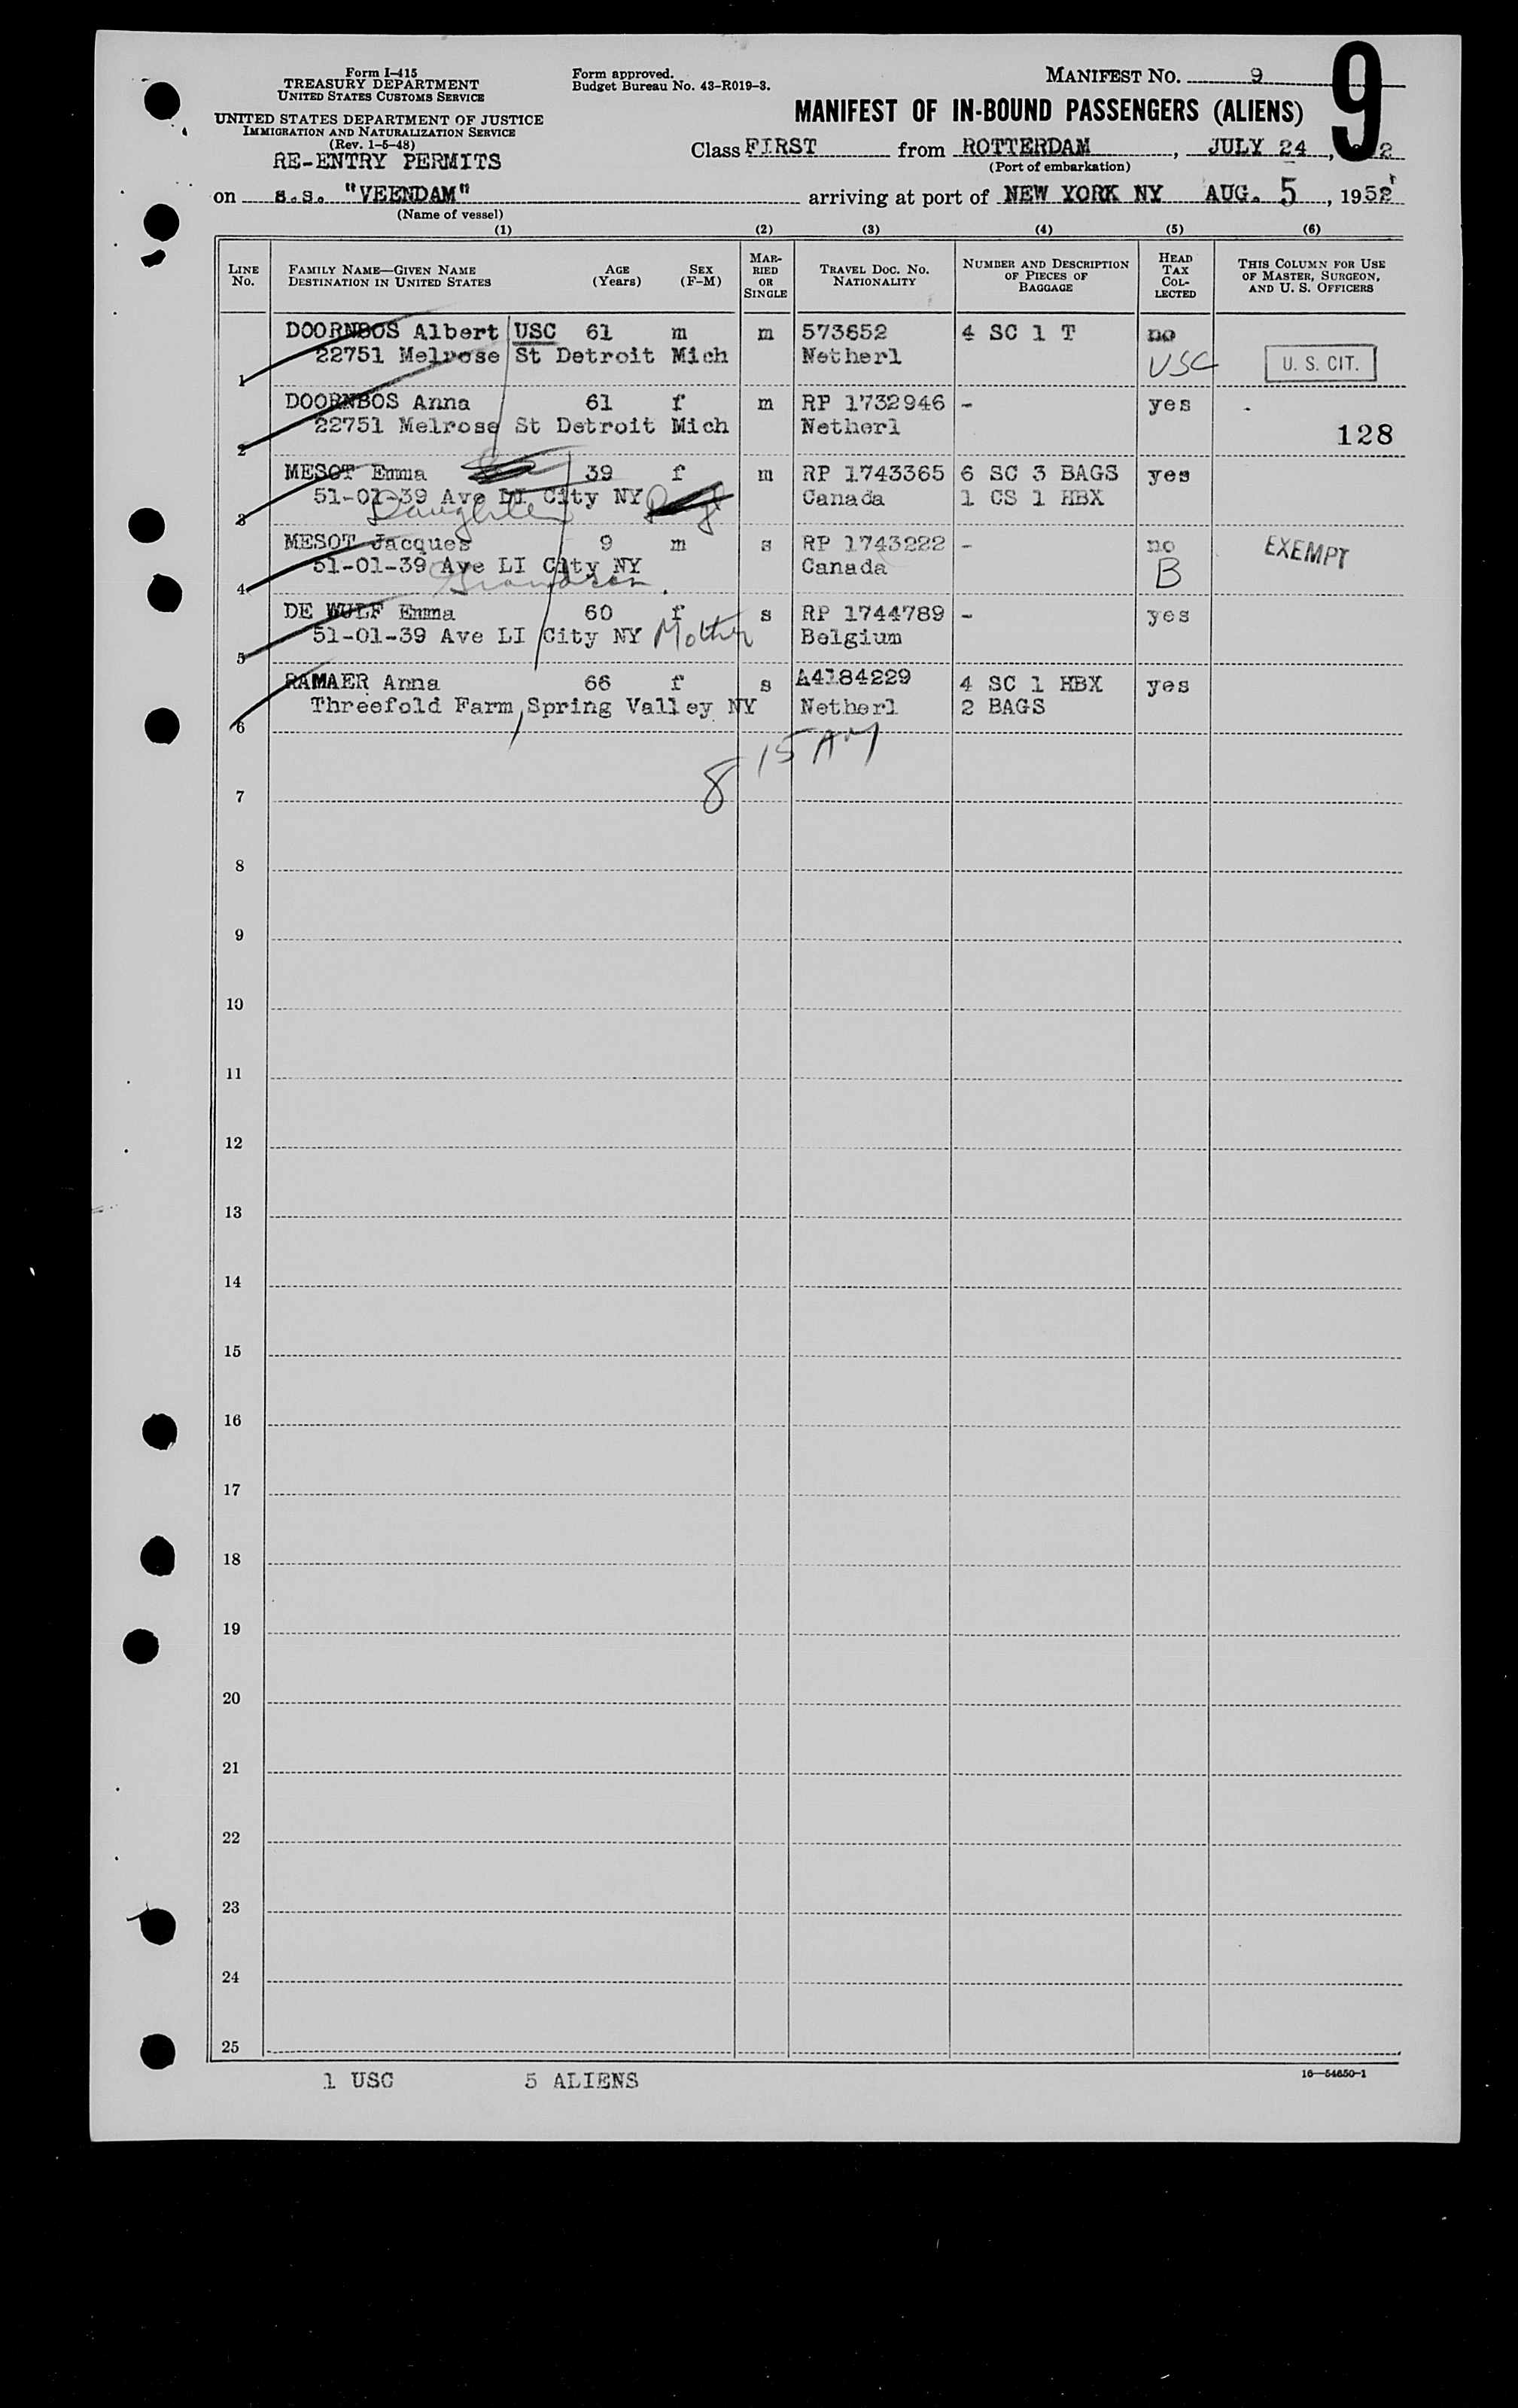 Form I-415
TREASURY DEPARTMENT
UNITED STATES CUSTOMS SERVICE
UNITED STATES DEPARTMENT OF JUSTICE
IMMIGRATION AND NATURALIZATION SERVICE
(Rev. 1-5-48)
RE-ENTRY PERMITS
Form approved.
Budget Bureau No. 43-R019-3.
MANIFEST NO. 9
9
MANIFEST OF IN-BOUND PASSENGERS (ALIENS)
Class FIRST from ROTTERDAM, JULY 24, 2
(Port of embarkation)
on s.s. "VEENDAM" arriving at port of NEW YORK NY AUG. 5, 1952
(Name of vessel)
(1) (2) (3) (4) (5) (6)
LINE NO. FAMILY NAME—GIVEN NAME DESTINATION IN UNITED STATES AGE (Years) SEX (F-M) MARRIED OR SINGLE TRAVEL DOC. NO. NATIONALITY NUMBER AND DESCRIPTION OF PIECES OF BAGGAGE HEAD TAX COLLECTED THIS COLUMN FOR USE OF MASTER, SURGEON, AND U. S. OFFICERS
DOORNBOS Albert USC 61 m m 573652 4 SC 1 T no
22751 Melrose St Detroit Mich Netherl USC U. S. CIT.
1
DOORNBOS Anna 61 f m RP 1732946 - yes
22751 Melrose St Detroit Mich Netherl 128
2
MESOT Emma 39 f m RP 1743365 6 SC 3 BAGS yes
51-01-39 Ave LI City NY Canada 1 CS 1 HBX
Daughter
3
MESOT Jacques 9 m s RP 1743222 - no EXEMPT
51-01-39 Ave LI City NY Canada B
Grandson
4
DE WULF Emma 60 f s RP 1744789 - yes
51-01-39 Ave LI City NY Mother Belgium
5
RAMAER Anna 66 f s A4184229 4 SC 1 HBX yes
Threefold Farm, Spring Valley NY Netherl 2 BAGS
6
8 15 AM
7
8
9
10
11
12
13
14
15
16
17
18
19
20
21
22
23
24
25
1 USC 5 ALIENS
16—54650-1